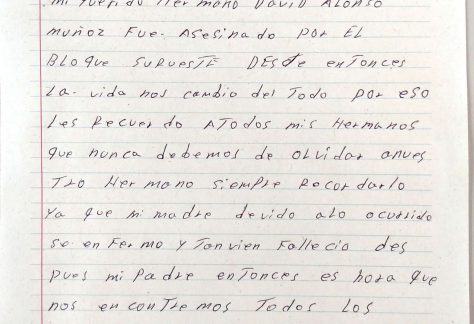 mi querido Hermano David Alonso
muñoz Fue. Asesinado Por EL
BLOque SURUESTE DESde enTonces
La. vida nos cambio del Todo por eso
Les Recuerdo ATodos mis Hermanos
que nunca debemos de oLvidar anues
TRo Hermano siempre Recordarlo
ya que mi madre devido alo ocurrido
se. enFermo y Tanvien Fallecio des
pues mi Padre enTonces es hora que
nos enconTremos Todos Los